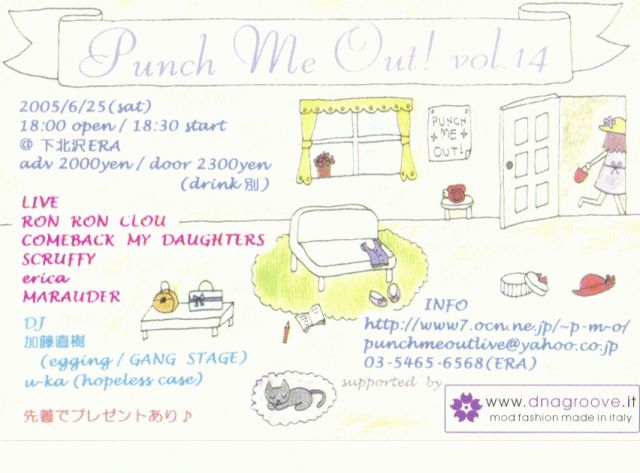 Punch Me Out! vol.14
2005/6/25(sat)
18:00 open / 18:30 start
@ 下北沢ERA
adv 2000yen / door 2300yen
(drink別)
PUNCH
ME
OUT!
LIVE
RON RON CLOU
COMEBACK MY DAUGHTERS
SCRUFFY
erica
MARAUDER
DJ
加藤直樹
(egging / GANG STAGE)
u-ka (hopeless case)
先着でプレゼントあり♪
INFO
http://www7.ocn.ne.jp/~p-m-o/
punchmeoutlive@yahoo.co.jp
03-5465-6568(ERA)
supported by
www.dnagroove.it
mod fashion made in italy